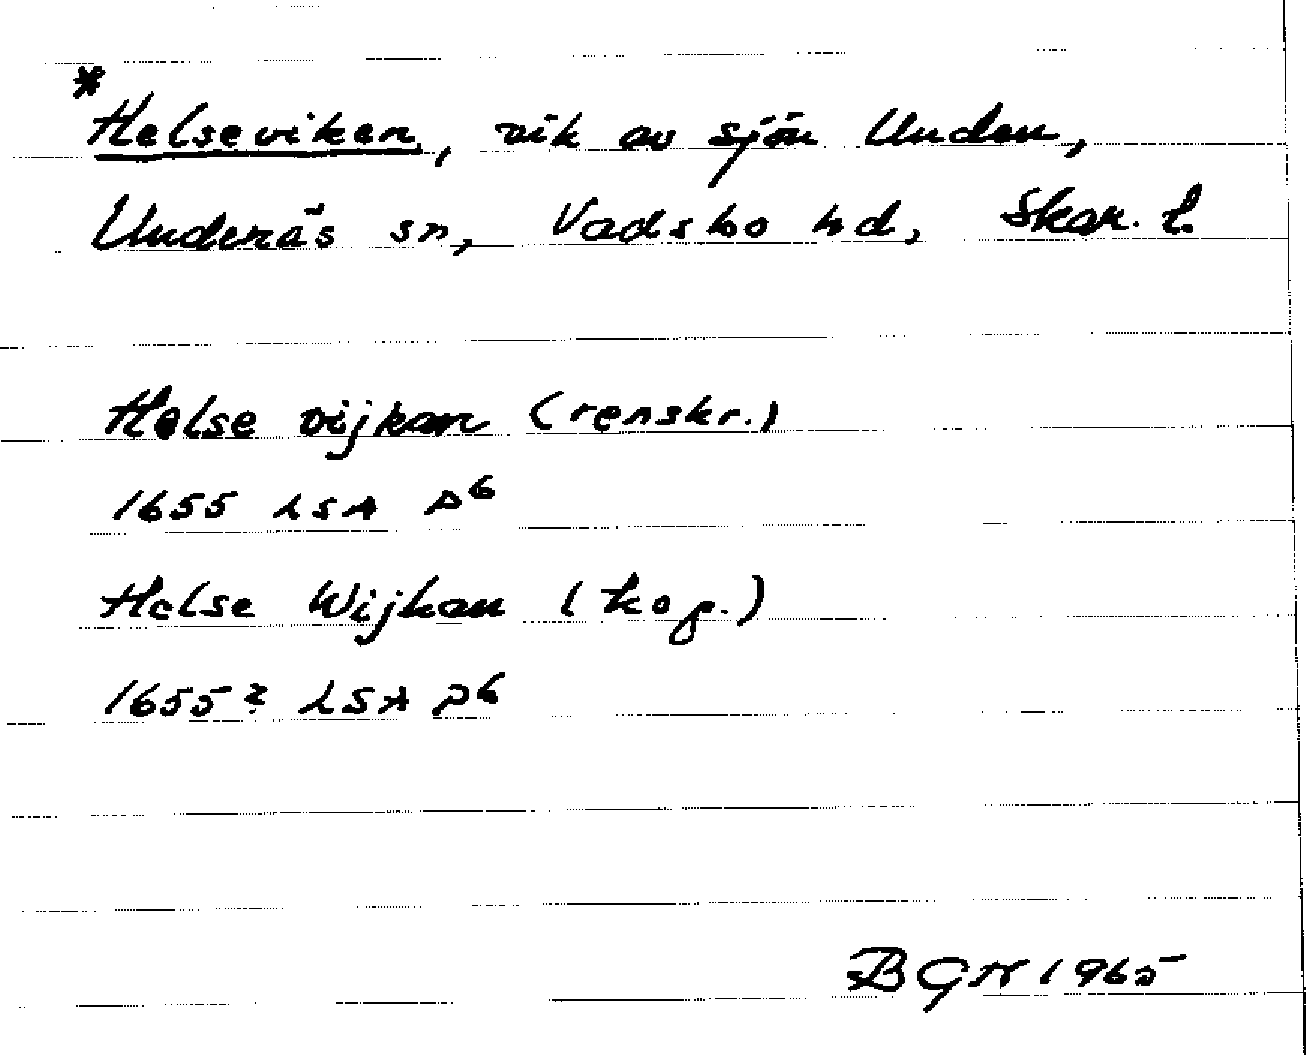 *Helseviken, vik av sjön Unden,
Undenäs sn, Vadsbo hd, Skar. l.
Helse vijkan (renskr.)
1655 LSA P6
Helse Wijkan (kop.)
1655? LSA P6
BGN 1965